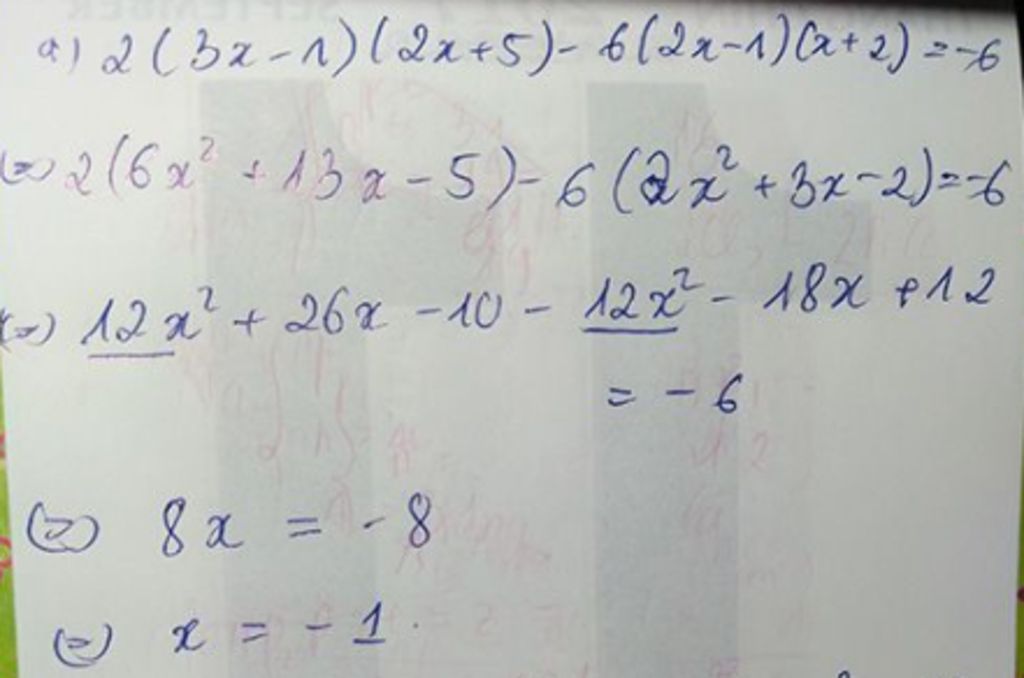 a) 2(3x-1)(2x+5)- 6(2x-1)(x+2)=-6
(=) 2(6x² +13x-5)- 6(2x²+3x-2)=-6
(=) 12x² + 26x -10 - 12x² - 18x +12
= -6
(=) 8x = -8
(=) x = -1.